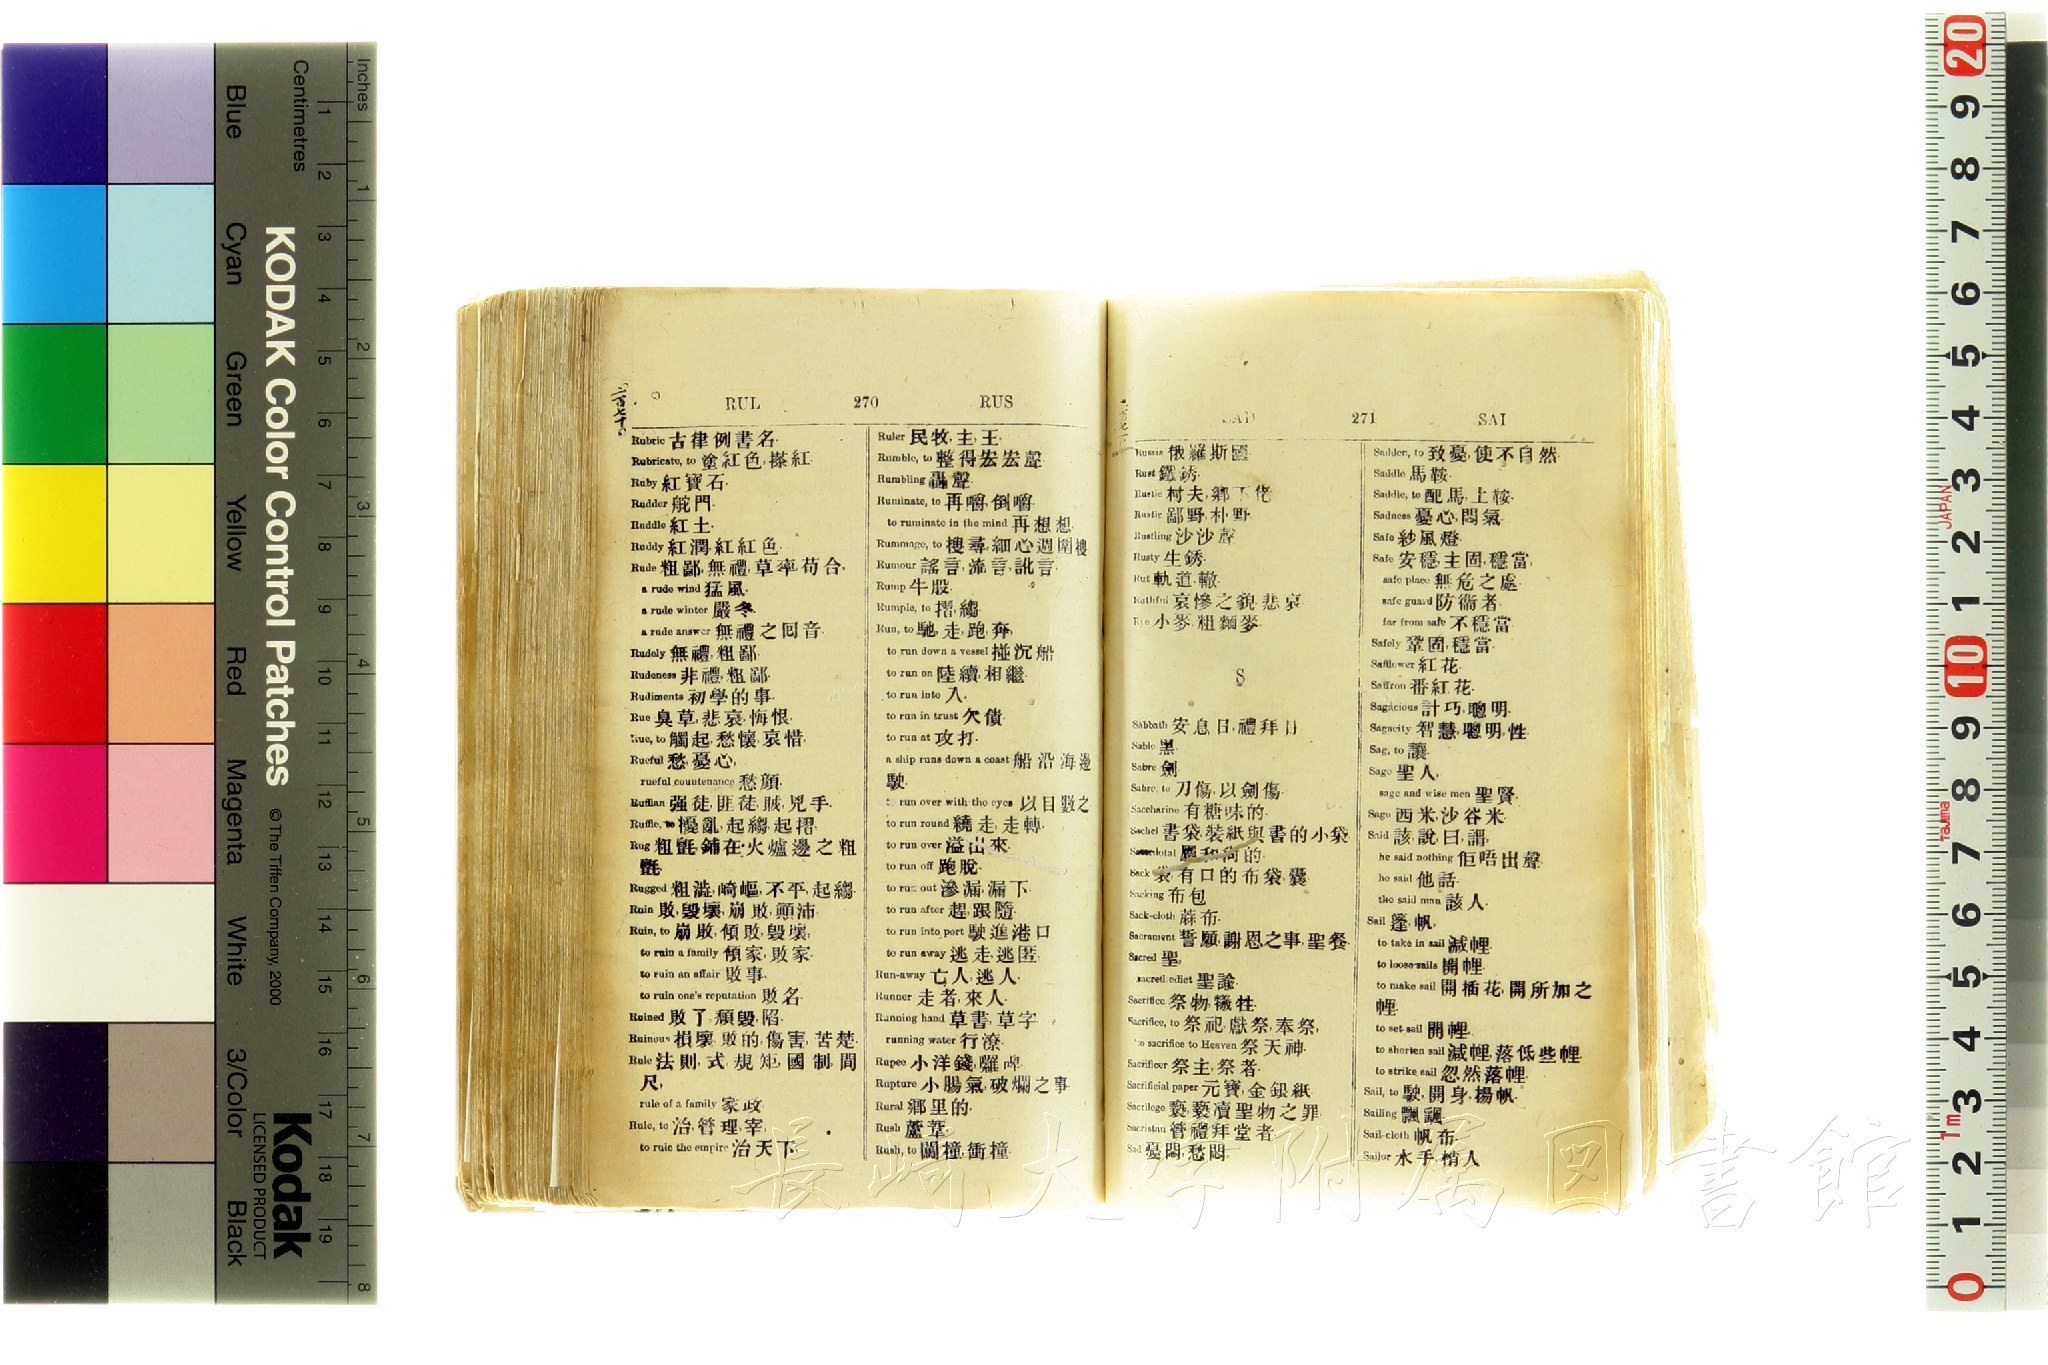 Inches
Centimetres
KODAK Color Control Patches
© The Tiffen Company, 2000
Kodak
LICENSED PRODUCT
Blue
Cyan
Green
Yellow
Red
Magenta
White
3/Color
Black
RUL 270 RUS
Rubric 古律例書名.
Rubricate, to 塗紅色,搽紅.
Ruby 紅寶石.
Rudder 舵門.
Ruddle 紅土.
Ruddy 紅潤,紅紅色.
Rude 粗鄙,無禮,草率,苟合,
a rude wind 猛風.
a rude winter 嚴冬.
a rude answer 無禮之回音.
Rudely 無禮,粗鄙.
Rudeness 非禮,粗鄙.
Rudiments 初學的事.
Rue 臭草,悲哀,悔恨.
Rue, to 觸起,愁懷,哀惜.
Rueful 愁,憂心,
rueful countenance 愁顏.
Ruffian 强徒,匪徒,賊,兇手.
Ruffle, to 擾亂,起縐,起摺.
Rug 粗氈,鋪在火爐邊之粗
氈.
Rugged 粗澁,崎嶇,不平,起縐.
Ruin 敗,毀壞,崩敗,顚沛.
Ruin, to 崩敗,傾敗,毀壞,
to ruin a family 傾家,敗家.
to ruin an affair 敗事.
to ruin one's reputation 敗名.
Ruined 敗了,頹毀,陷.
Ruinous 損壞,敗的,傷害,苦楚.
Rule 法則,式,規矩,國制,間
尺,
rule of a family 家政.
Rule, to 治,管理,宰,
to rule the empire 治天下.
Ruler 民牧,主,王.
Rumble, to 整得宏宏聲.
Rumbling 轟聲.
Ruminate, to 再嚼,倒嚼.
to ruminate in the mind 再想想.
Rummage, to 搜尋,細心週圍搜.
Rumour 謠言,流言,訛言.
Rump 牛股.
Rumple, to 摺,縐.
Run, to 馳,走,跑,奔,
to run down a vessel 掽沉船.
to run on 陸續,相繼.
to run into 入.
to run in trust 欠債.
to run at 攻打.
a ship runs down a coast 船沿海邊
駛.
to run over with the eyes 以目數之
to run round 繞走,走轉.
to run over 溢出來.
to run off 跑脫.
to run out 滲漏,漏下.
to run after 趕,跟隨.
to run into port 駛進港口
to run away 逃走,逃匿.
Run-away 亡人,逃人.
Runner 走者,來人.
Running hand 草書,草字
running water 行潦.
Rupee 小洋錢,囉啤.
Rupture 小腸氣,破爛之事.
Rural 鄉里的.
Rush 蘆葦.
Rush, to 闖撞,衝撞.
SAD 271 SAI
Russia 俄羅斯國.
Rust 鐵銹.
Rustic 村夫,鄉下佬.
Rustic 鄙野,朴野.
Rustling 沙沙聲.
Rusty 生銹.
Rut 軌道,轍.
Ruthful 哀慘之貌,悲哀.
Rye 小麥,粗麵麥.
S
Sabbath 安息日,禮拜日.
Sable 黑.
Sabre 劍.
Sabre, to 刀傷,以劍傷.
Saccharine 有糖味的.
Sachel 書袋,裝紙與書的小袋.
Sack 袋,有口的布袋,囊.
Sacking 布包
Sack-cloth 蔴布.
Sacrament 誓願,謝恩之事,聖餐.
Sacred 聖,
sacred edict 聖諭.
Sacrifice 祭物,犧牲.
Sacrifice, to 祭祀,獻祭,奉祭,
to sacrifice to Heaven 祭天神.
Sacrificer 祭主,祭者.
Sacrificial paper 元寶,金銀紙.
Sacrilege 褻凟聖物之罪.
Sacristan 管禮拜堂者.
Sad 憂悶,愁悶.
Sadden, to 致憂,使不自然.
Saddle 馬鞍.
Saddle, to 配馬,上鞍.
Sadness 憂心,悶氣.
Safe 紗風燈.
Safe 安穩,主固,穩當,
safe place 無危之處.
safe guard 防衞者.
far from safe 不穩當.
Safely 鞏固,穩當.
Safflower 紅花.
Saffron 番紅花.
Sagacious 計巧,聰明.
Sagacity 智慧,聰明,性.
Sag, to 讓.
Sage 聖人,
sage and wise men 聖賢.
Sago 西米,沙谷米.
Said 該,說,曰,謂,
he said nothing 佢唔出聲.
he said 他話.
the said man 該人.
Sail 篷,帆,
to take in sail 減𢃇.
to loose sails 開𢃇.
to make sail 開插花,開所加之
𢃇.
to set sail 開𢃇.
to shorten sail 減𢃇,落低些𢃇.
to strike sail 忽然落𢃇.
Sail, to 駛,開身,揚帆.
Sailing 飄颻.
Sail-cloth 帆布.
Sailor 水手,梢人.
長崎大学附属図書館
JAPAN
Tajima
1m